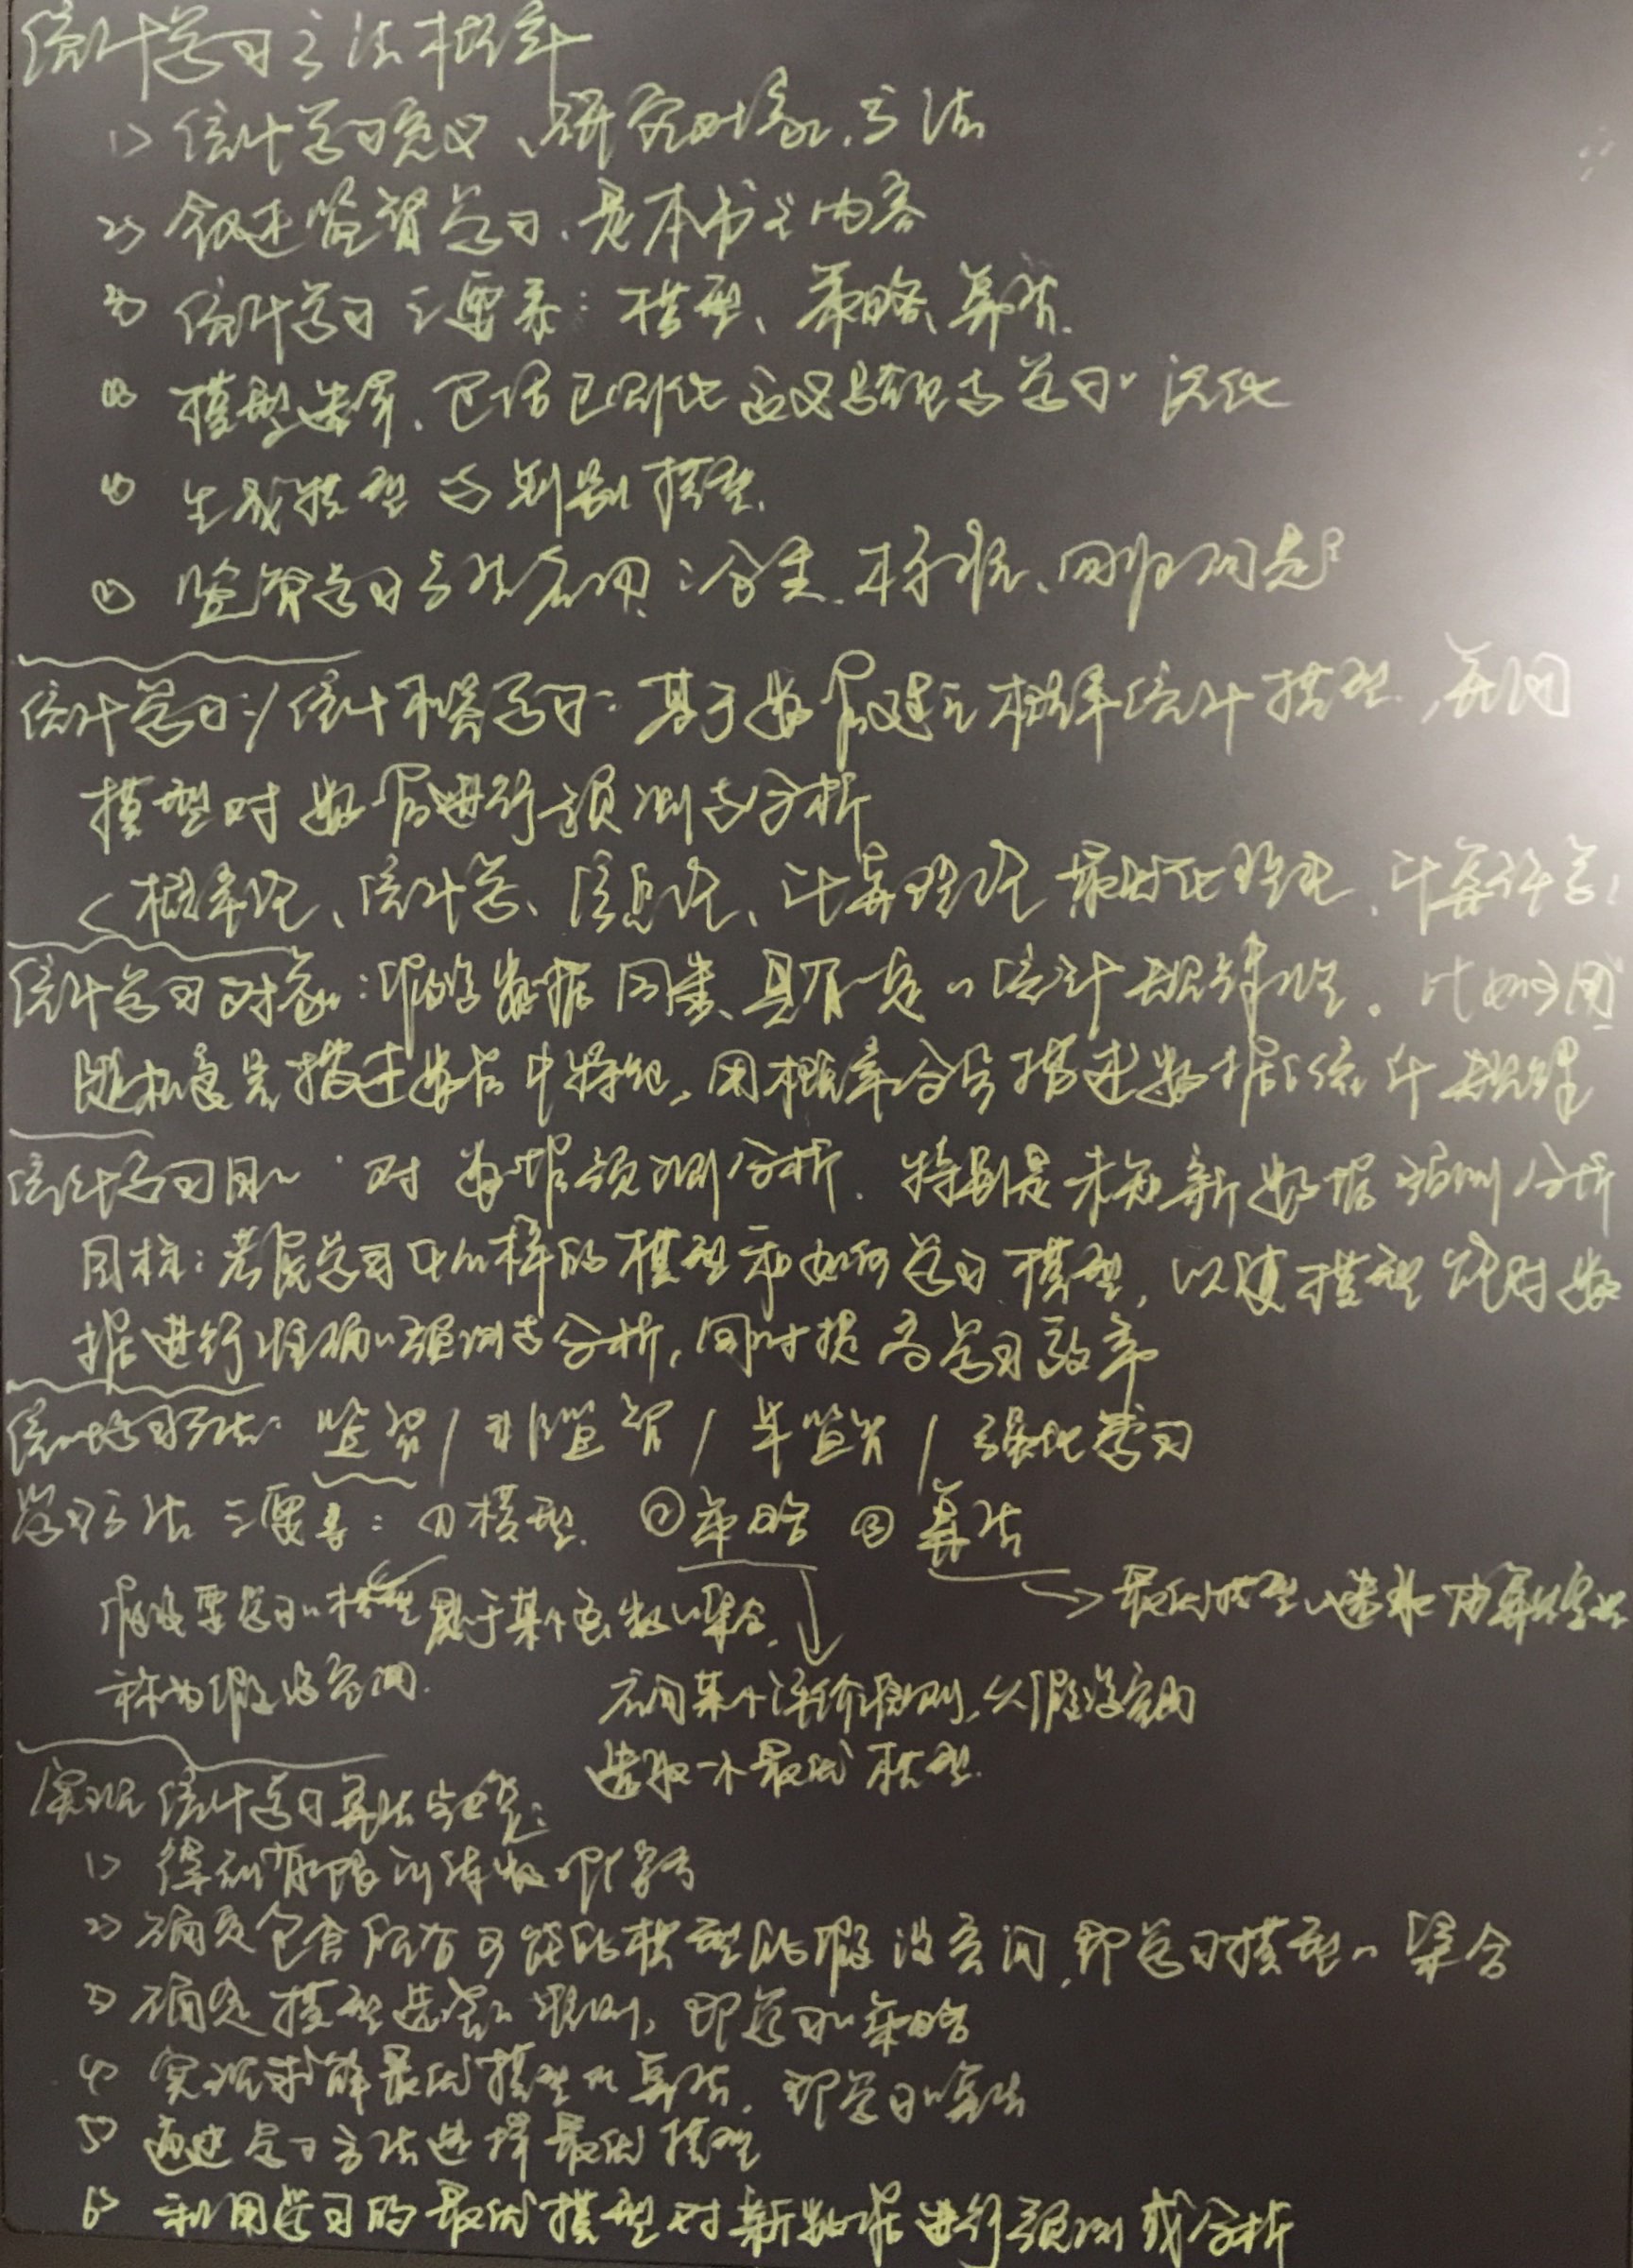 统计学习方法概率
1) 统计学习定义、研究对象、方法
2) 叙述监督学习、是本书之内容
3) 统计学习三要素：模型、策略、算法.
模型选择、包括正则化、交叉验证与学习 泛化
生成模型与判别模型.
监督学习方法应用：分类.标注、回归问题
统计学习：/统计机器学习：基于数据建立概率统计模型，并用
模型对数据进行预测与分析
<概率论、统计学、信息论、计算理论 最优化理论、计算机科学
统计学习对象：数据 同类、具有一定 统计规律性。比如用
随机变量描述数据中特征，用概率分布描述数据统计规律
统计学习目 对数据预测分析.特别是未知新数据预测分析
目标：考虑学习什么样的模型和如何学习模型，以使模型能对数
据进行准确 预测与分析，同时提高学习效率
统计学习方法：监督/非监督/半监督/强化学习
学习方法三要素：①模型.②策略 ③算法
假设要学习 模型属于某个函数 集合，
→最优模型 选取由算法实现
称为假设空间.
应用某个评价准则，从假设空间
选取一个最优模型.
实现统计学习算法步骤：
1) 得到有限训练数据集合
2) 确定包含所有可能的模型的假设空间，即学习模型 集合
3) 确定模型选择 准则，即学习 策略
4) 实现求解最优模型 算法，即学习 算法
5) 通过学习方法选择最优模型
6) 利用学习的最优模型对新数据进行预测或分析